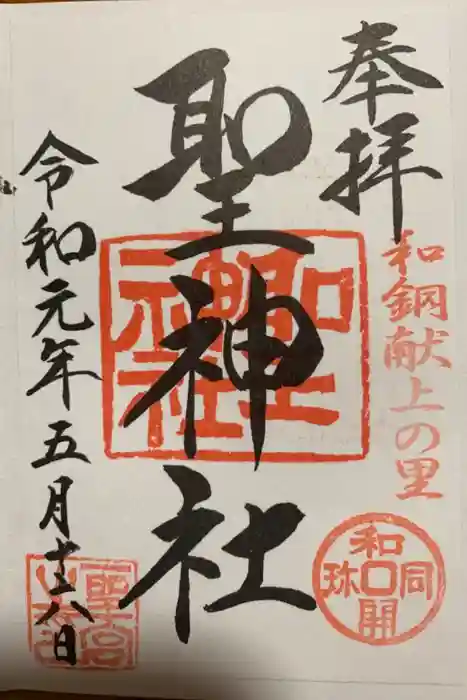 奉拝
和銅献上の里
和同開珎
聖神社
聖神社
令和元年五月十六日